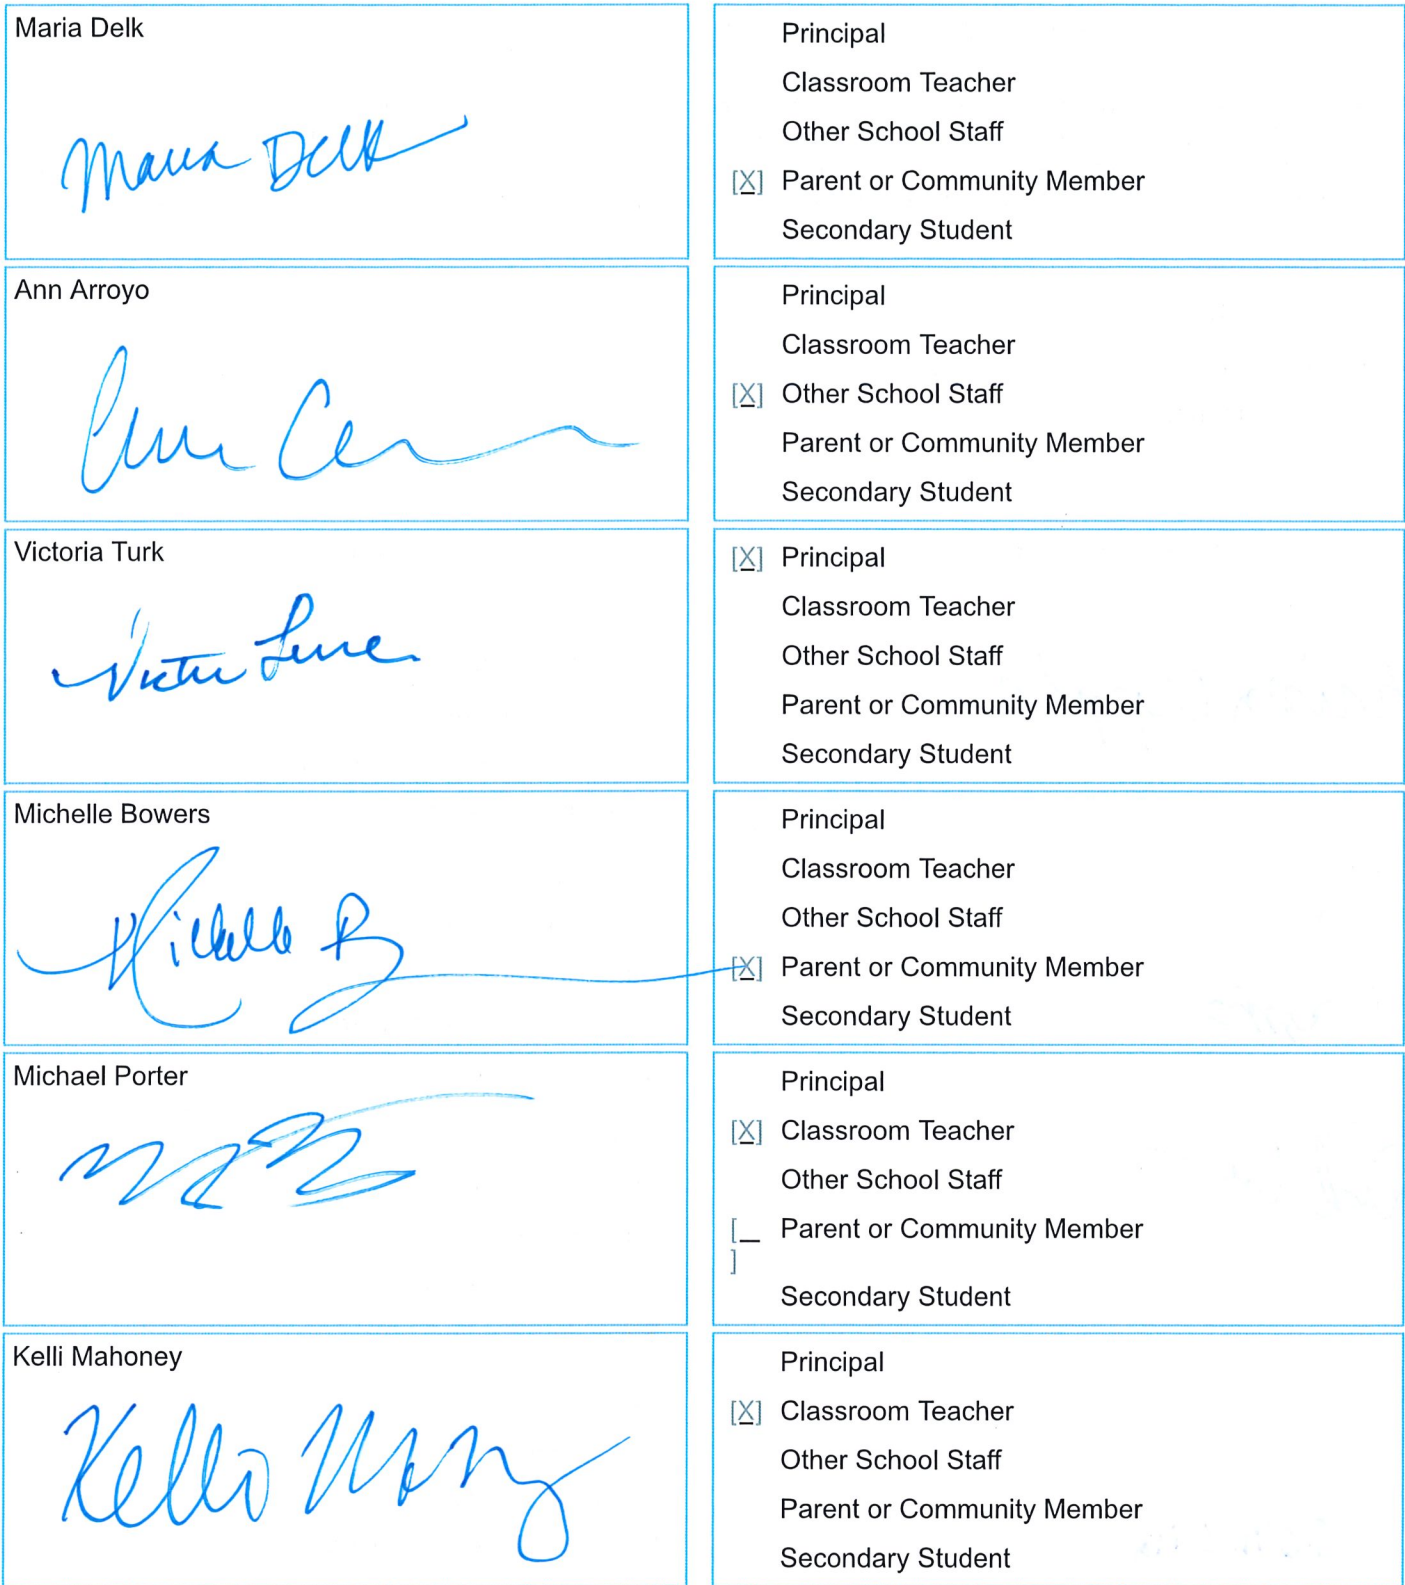 Maria Delk
Maria Delk
Principal
Classroom Teacher
Other School Staff
[X] Parent or Community Member
Secondary Student
Ann Arroyo
Principal
Classroom Teacher
[X] Other School Staff
Parent or Community Member
Secondary Student
Victoria Turk
[X] Principal
Classroom Teacher
Other School Staff
Parent or Community Member
Secondary Student
Michelle Bowers
Michelle B
Principal
Classroom Teacher
Other School Staff
[X] Parent or Community Member
Secondary Student
Michael Porter
Principal
[X] Classroom Teacher
Other School Staff
[_ Parent or Community Member
]
Secondary Student
Kelli Mahoney
Principal
[X] Classroom Teacher
Other School Staff
Parent or Community Member
Secondary Student